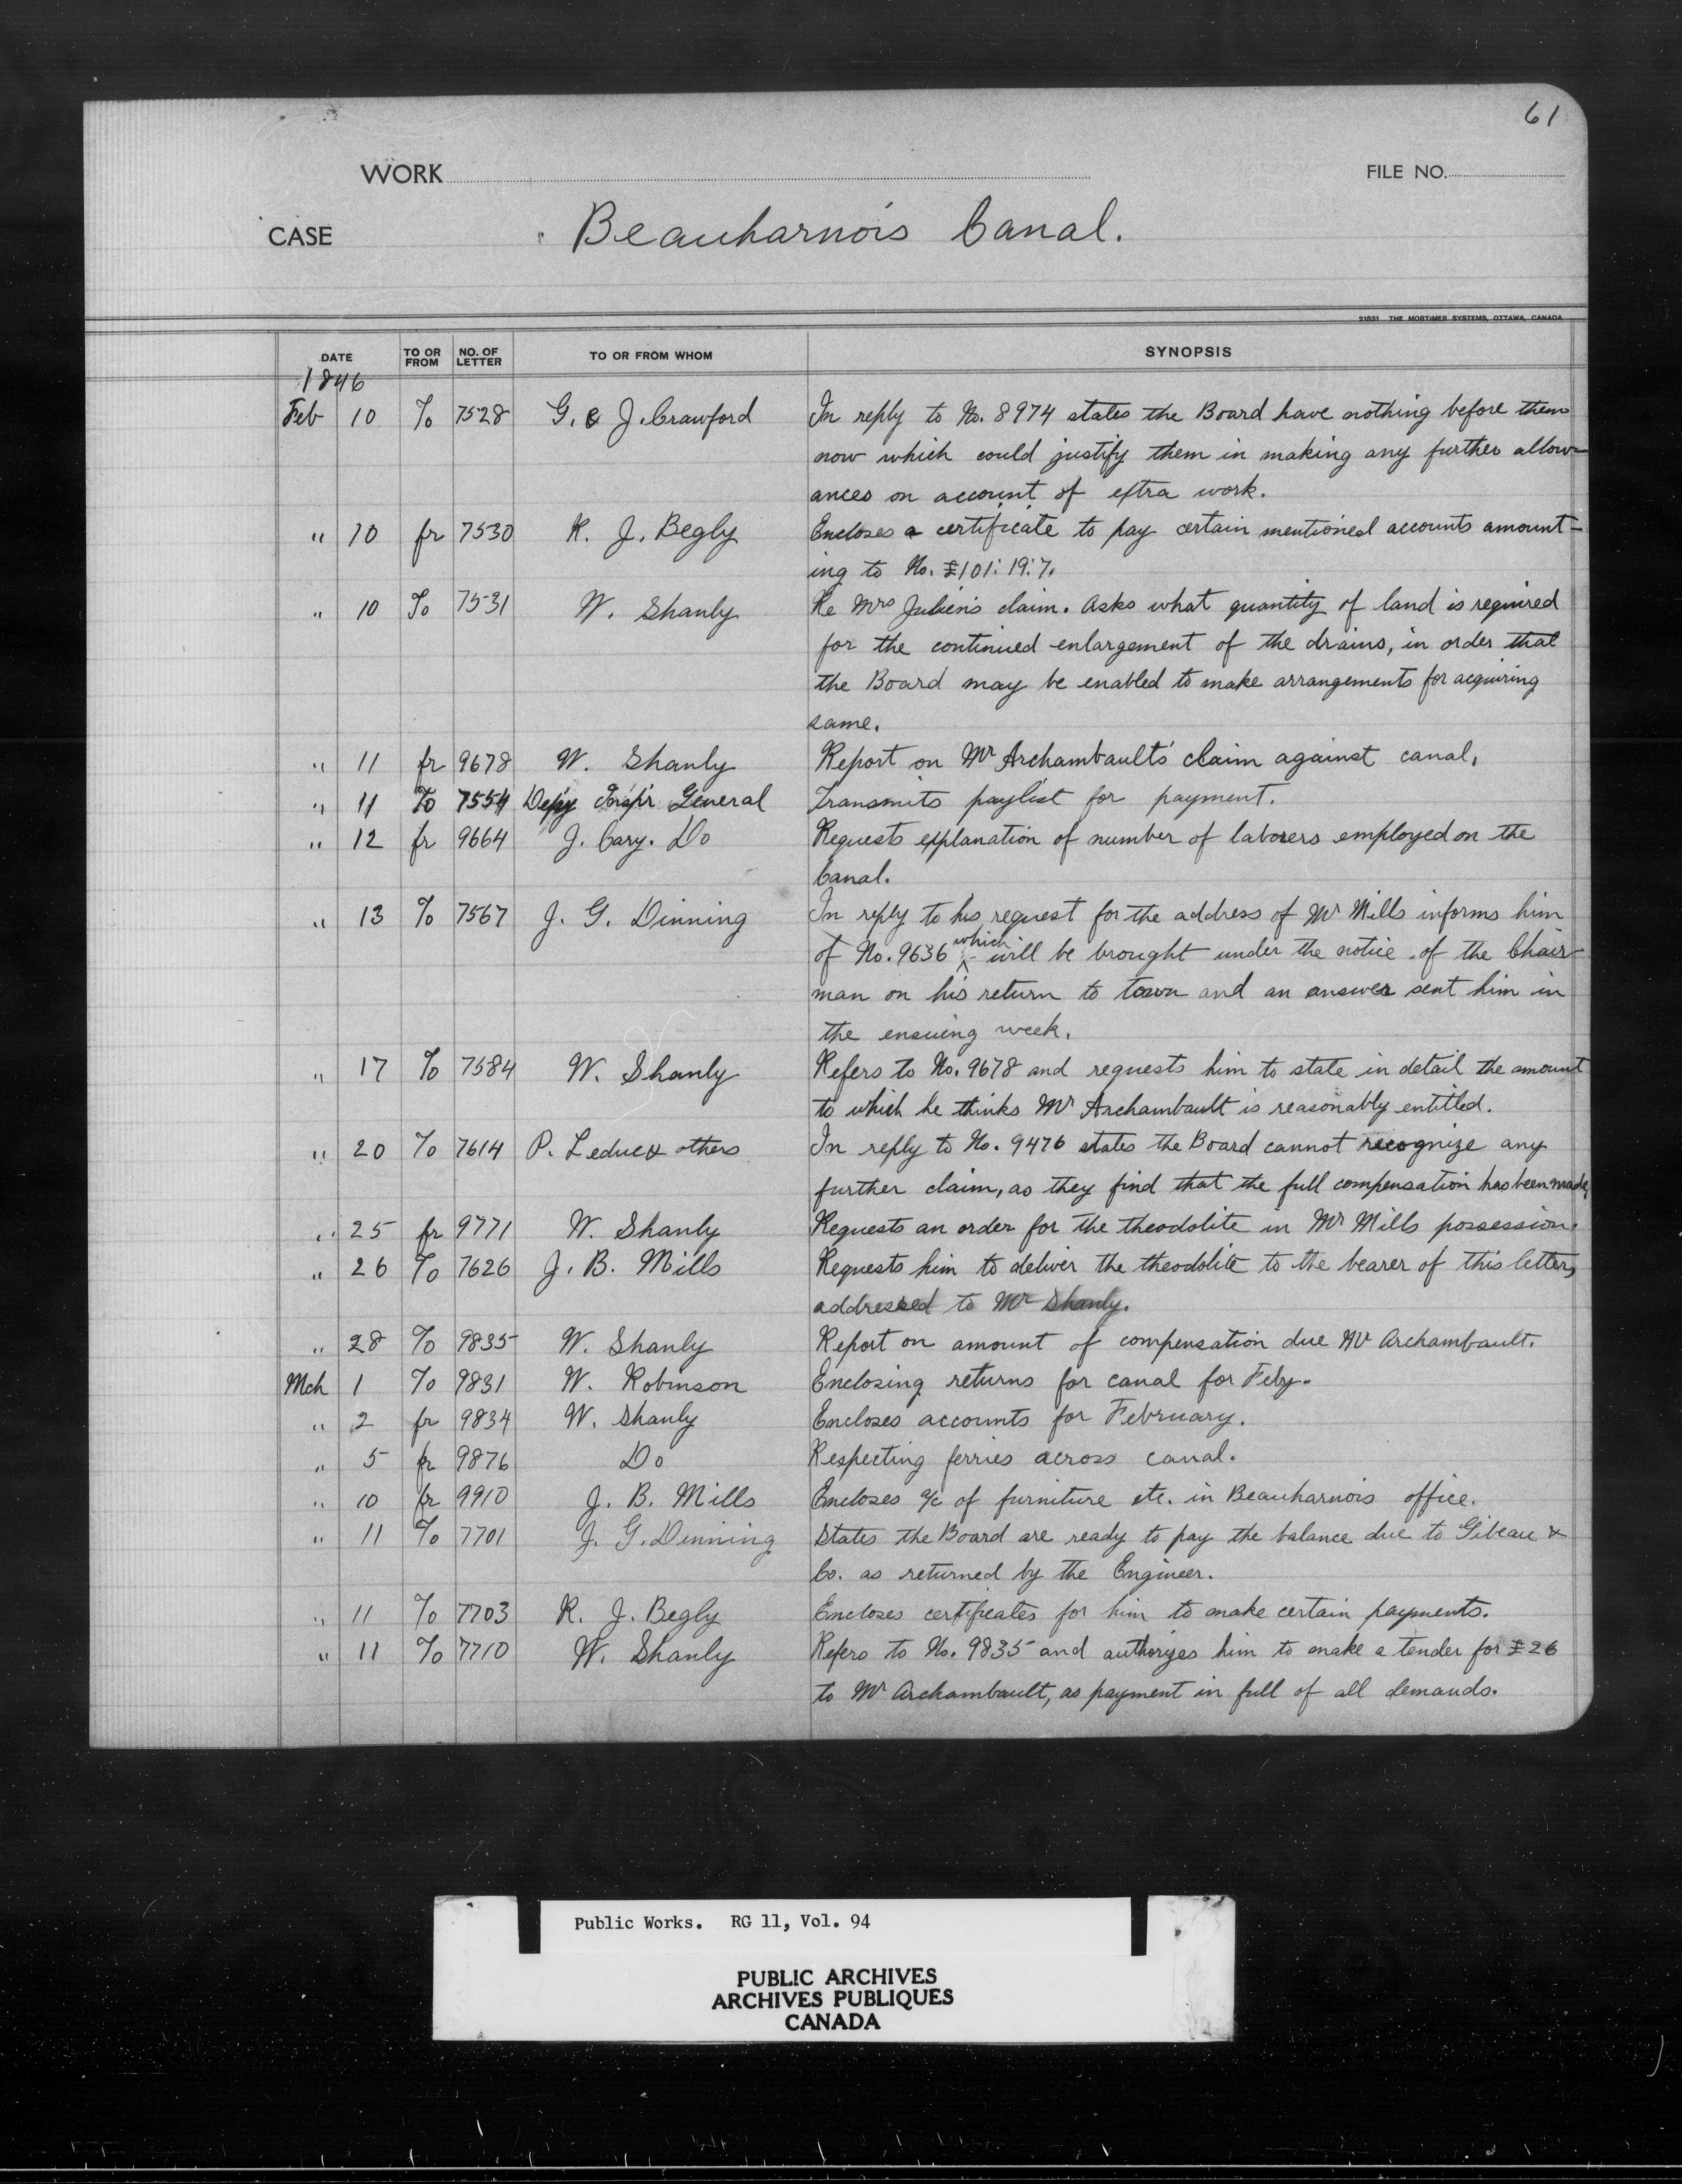 61
WORK
FILE NO.
CASE
Beauharnois Canal.
21631 THE MORTIMER SYSTEMS, OTTAWA, CANADA
DATE TO OR FROM NO. OF LETTER TO OR FROM WHOM SYNOPSIS
1846
Feb 10 To 7528 G. & J. Crawford In reply to No. 8974 states the Board have nothing before them
now which could justify them in making any further allow-
ances on account of extra work.
" 10 fr 7530 R. J. Begly Encloses a certificate to pay certain mentioned accounts amount-
ing to No. £101:19:7.
" 10 To 7531 W. Shanly Re Mrs Julien's claim. Asks what quantity of land is required
for the continued enlargement of the drains, in order that
the Board may be enabled to make arrangements for acquiring
same.
" 11 fr 9678 W. Shanly Report on Mr Archambault's claim against canal.
" 11 To 7554 Depy Insp'r General Transmits paylist for payment.
" 12 fr 9664 J. Cary. Do Requests explanation of number of laborers employed on the
Canal.
" 13 To 7567 J. G. Dinning In reply to his request for the address of Mr Mills informs him
of No. 9636 which will be brought under the notice of the Chair-
man on his return to town and an answer sent him in
the ensuing week.
" 17 To 7584 W. Shanly Refers to No. 9678 and requests him to state in detail the amount
to which he thinks Mr Archambault is reasonably entitled.
" 20 To 7614 P. Leduc & others In reply to No. 9476 states the Board cannot recognize any
further claim, as they find that the full compensation has been made,
" 25 fr 9771 W. Shanly Requests an order for the theodolite in Mr Mills possession.
" 26 To 7626 J. B. Mills Requests him to deliver the theodolite to the bearer of this letter,
addressed to Mr Shanly.
" 28 To 9835 W. Shanly Report on amount of compensation due Mr Archambault.
Mch 1 To 9831 W. Robinson Enclosing returns for canal for Feby.
" 2 fr 9834 W. Shanly Encloses accounts for February.
" 5 fr 9876 Do Respecting ferries across canal.
" 10 fr 9910 J. B. Mills Encloses a/c of furniture etc. in Beauharnois office.
" 11 To 7701 J. G. Dinning States the Board are ready to pay the balance due to Gibeau &
Co. as returned by the Engineer.
" 11 To 7703 R. J. Begly Encloses certificates for him to make certain payments.
" 11 To 7710 W. Shanly Refers to No. 9835 and authorizes him to make a tender for £26
to Mr Archambault, as payment in full of all demands.
Public Works. RG 11, Vol. 94
PUBLIC ARCHIVES
ARCHIVES PUBLIQUES
CANADA